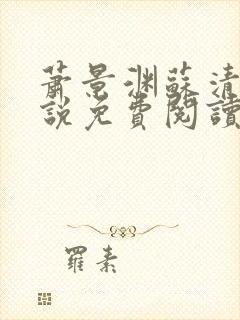 蕭景渊蘇清
說免費閱讀
羅素